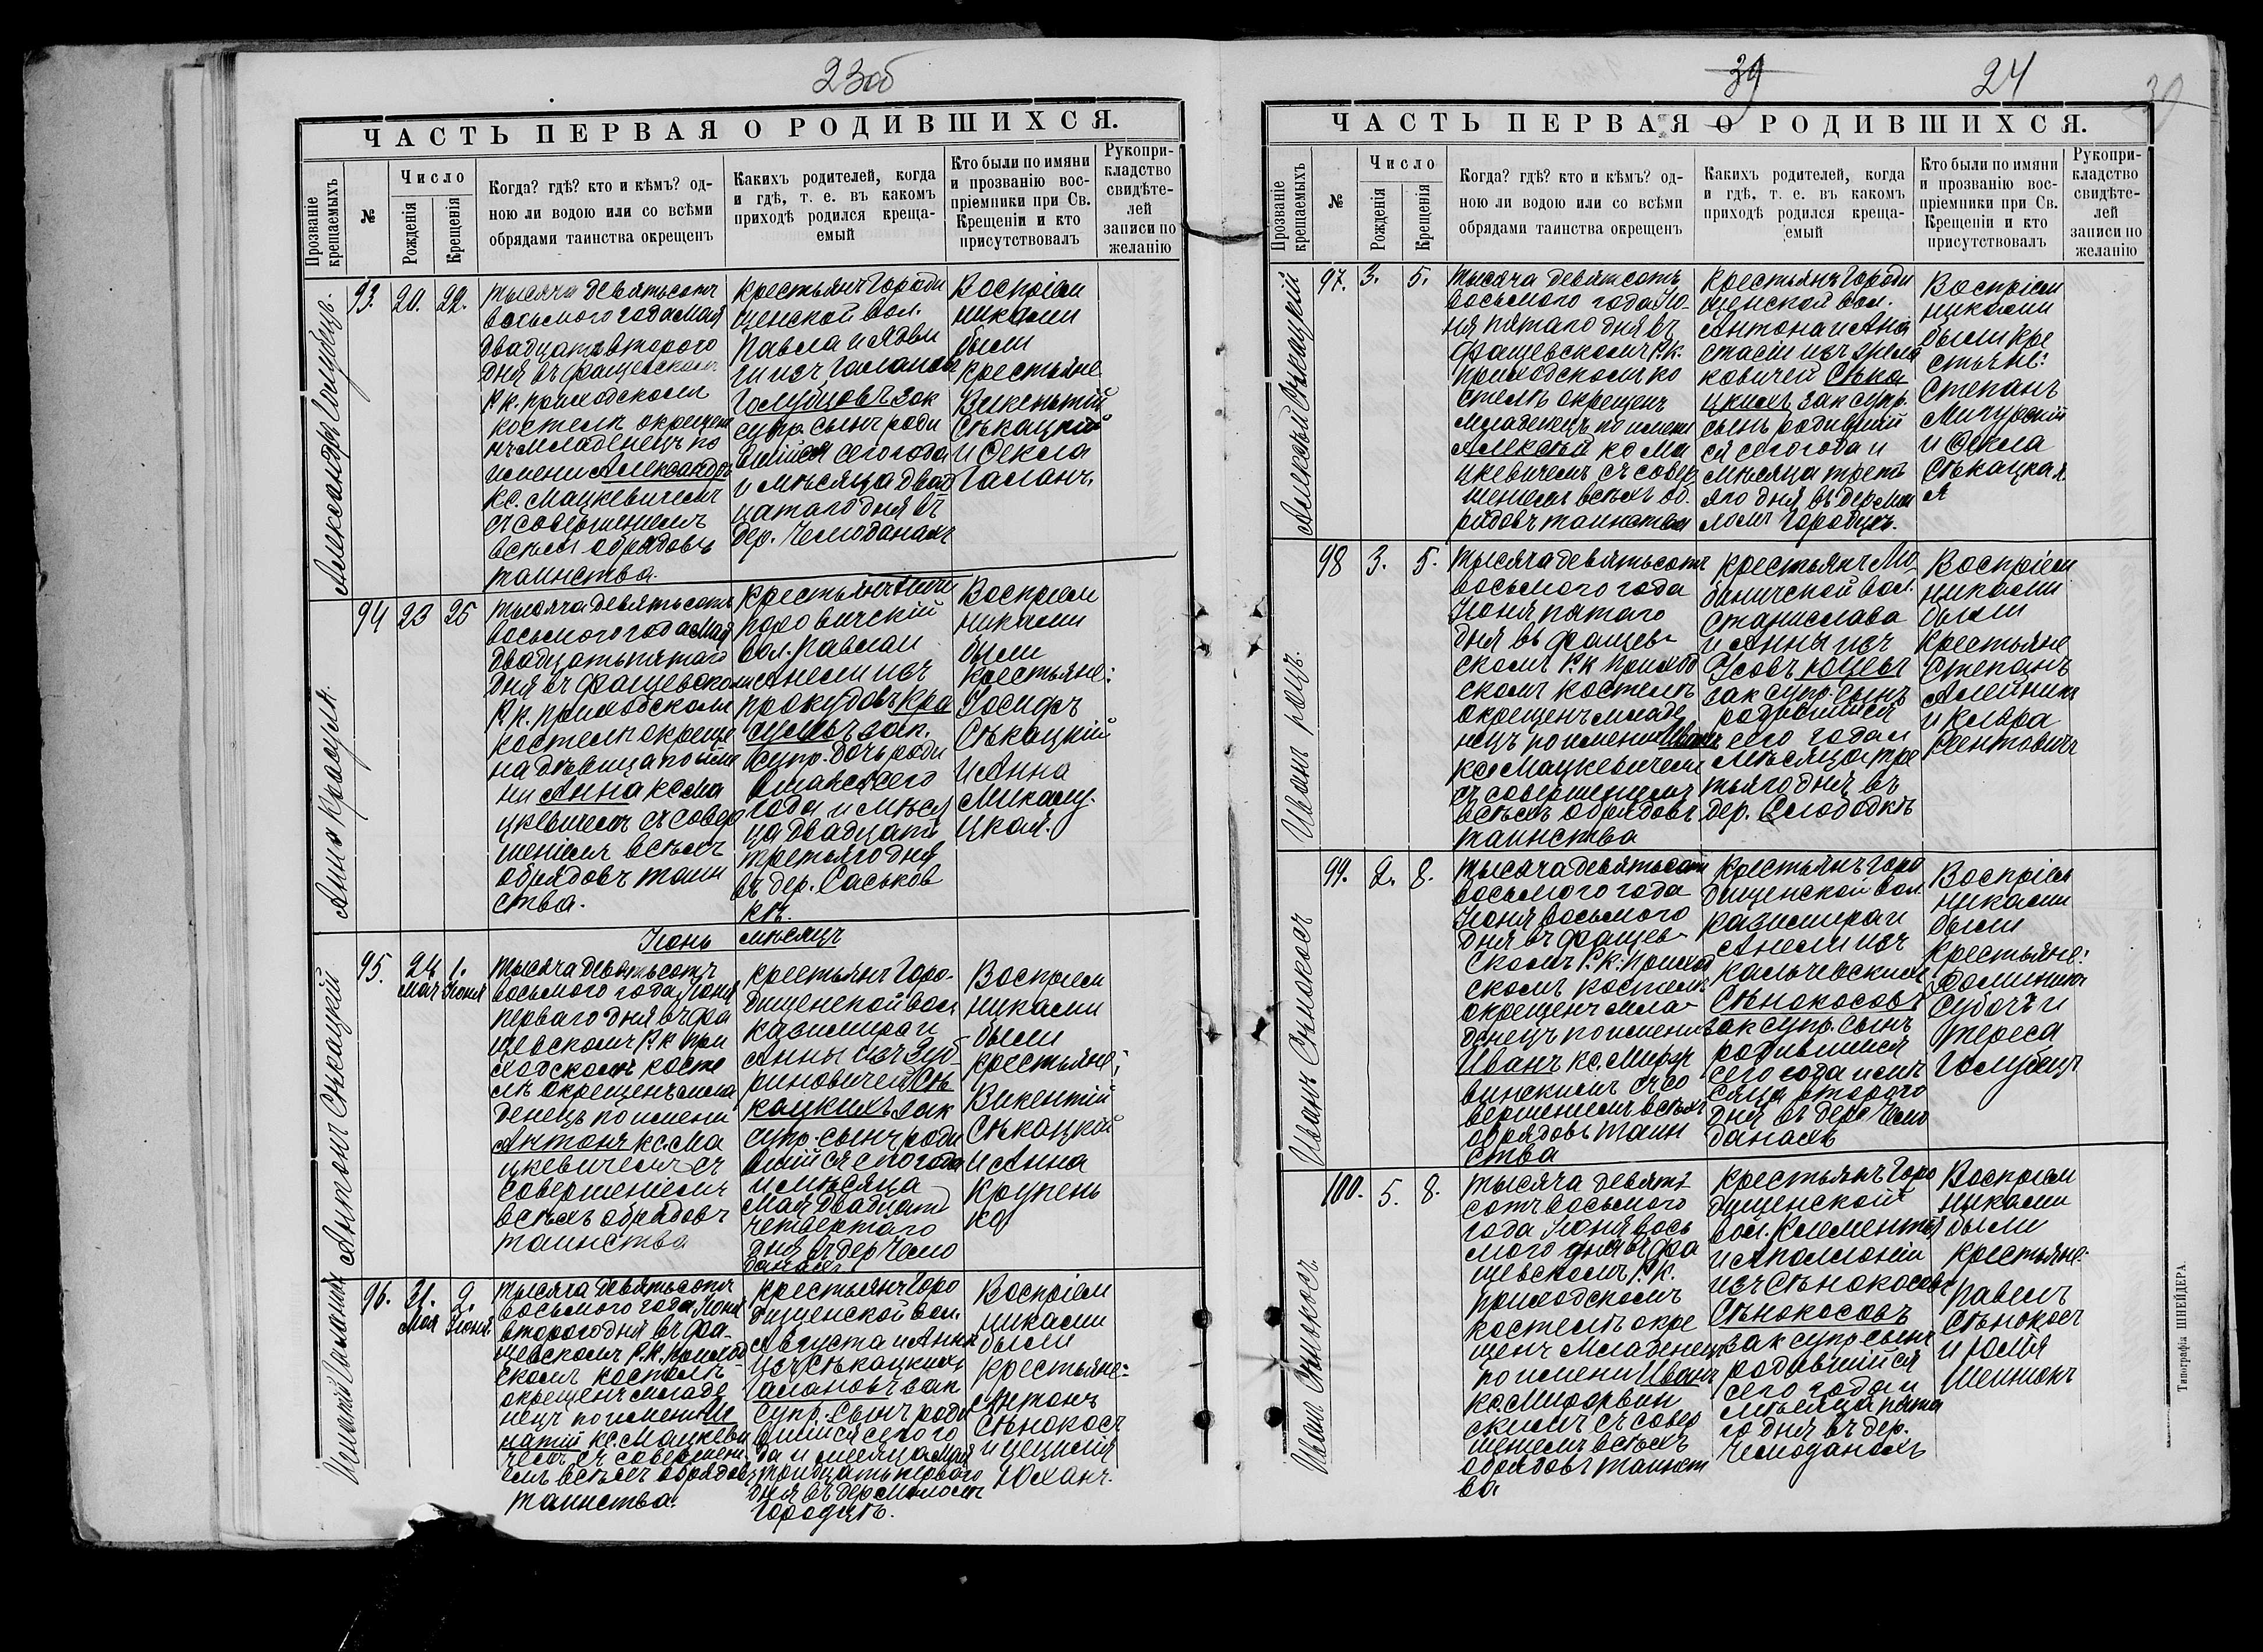 23об
ЧАСТЬ ПЕРВАЯ О РОДИВШИХСЯ.
Прозваніе крещаемыхъ
№
Число
Рожденія
Крещенія
Когда? гдѣ? кто и кѣмъ? од-
ною ли водою или со всѣми
обрядами таинства окрещенъ
Какихъ родителей, когда
и гдѣ, т. е. въ какомъ
приходѣ родился креща-
емый
Кто были по имяни
и прозванію вос-
пріемники при Св.
Крещеніи и кто
присутствовалъ
Рукопри-
кладство
свидѣте-
лей
записи по
желанію
Александръ Голубецъ.
93.
20.
22.
Тысяча девятьсотъ
восьмого года Мая
двадцать второго
дня въ Фащевскомъ
Р. к. приходскомъ
костелѣ окрещен
ъ младенецъ по
имени Александръ
кс. Мацкевичемъ
съ совершеніемъ
всѣхъ обрядовъ
таинства.
Крестьянъ Городи
щенской вол.
Павла и Ядви
ги изъ Галановъ
Голубцовъ зак
супр. сынъ роди
вшійся сего года
и мѣсяца двад
цатаго дня въ
дер. Чемоданахъ
Воспріем
никами
были
крестьяне
Викентій
Сѣкацкій
и Фекла
Галанъ.
Анна Крацуля.
94
23
25
Тысяча девятьсотъ
восьмого года Мая
двадцать пятаго
дня въ Фащевскомъ
Р. к. приходскомъ
костелѣ окреще
на дѣвица по име
ни Анна кс. Ма
цкевичемъ съ совер
шеніемъ всѣхъ
обрядовъ таин
ства.
вол. Павла и
Анели изъ
зак.
супр. дочь роди
вшаяся сего
года и мѣся
ца двадцать
третьяго дня
въ дер. Саськов
кѣ.
Воспріем
никами
были
крестьяне:
Іосифъ
Сѣкацкій
и Анна
Іюнь мѣсяцъ
Антонъ Сѣкацкій
95.
24 мая
1. Іюня
Тысяча девятьсотъ
восьмого года Іюня
перваго дня въ Фа
щевскомъ Р. к. при
ходскомъ косте
лѣ окрещенъ мла
денецъ по имени
Антонъ кс. Ма
цкевичемъ съ
совершеніемъ
всѣхъ обрядовъ
таинства
Крестьянъ Горо-
дищенской вол
Казимира и
Анны изъ Зуб
риновичей Сѣ
кацкихъ зак
супр. сынъ роди
вшійся сего года
и мѣсяца
Мая двадцать
четвертаго
дня въ дер Чемо
данахъ
Воспріем
никами
были
крестьяне:
Викентій
Сѣкацкій
и Анна
Крупень
ко
Игнатій Галанъ
96.
31. Мая
2. Іюня.
Тысяча девятьсотъ
восьмого года Іюня
второго дня въ Фа-
щевскомъ Р. К. приход
скомъ костелѣ
окрещенъ младе
нецъ по имени Иг
натій кс. Мацкеви
чемъ съ совершені
емъ всѣхъ обрядовъ
таинства.
Крестьянъ Горо
дищенской вол.
Августа и Анны
изъ Сѣкацкихъ
Галановъ зак
супр. сынъ роди
вшійся сего го
да и мѣсяца Мая
тридцать перваго
дня въ дер Маломъ
Городцѣ.
Воспріем
никами
были
крестьяне:
Антонъ
Сѣнокосъ
и Цецилія
Юханъ.
39
24
ЧАСТЬ ПЕРВАЯ О РОДИВШИХСЯ.
Прозваніе крещаемыхъ
№
Число
Рожденія
Крещенія
Когда? гдѣ? кто и кѣмъ? од-
ною ли водою или со всѣми
обрядами таинства окрещенъ
Какихъ родителей, когда
и гдѣ, т. е. въ какомъ
приходѣ родился креща-
емый
Кто были по имяни
и прозванію вос-
пріемники при Св.
Крещеніи и кто
присутствовалъ
Рукопри-
кладство
свидѣте-
лей
записи по
желанію
Алексѣй Сѣкацкій
97.
3.
5.
Тысяча девятьсотъ
восьмого года Ію-
ня пятаго дня въ
Фащевскомъ Р. к.
приходскомъ ко
стелѣ окрещенъ
младенецъ по имени
Алексѣй кс Ма
цкевичемъ съ совер
шеніемъ всѣхъ об-
рядовъ таинства
Крестьянъ Городи
щенской вол.
Антона и Ана
стасіи изъ
ковичей Сѣка
цкихъ зак супр.
сынъ родившій
ся сего года и
мѣсяца треть
яго дня въ дер Ма
ломъ Городцѣ.
Воспріем
никами
были кре
стьяне:
Степанъ
Мигурскій
и Фекла
Сѣкацкая
Иванъ Юцъ.
98
3.
5.
Тысяча девятьсотъ
восьмого года
Іюня пятаго
дня въ Фащев-
скомъ Р. к приход
скомъ костелѣ
окрещенъ младе
нецъ по имени Иванъ
кс. Мацкевичемъ
съ совершеніемъ
всѣхъ обрядовъ
таинства
Крестьянъ
вол.
Станислава
и Анны изъ
Усовъ Юцевъ
зак супр. сынъ
родившійся
сего года и
мѣсяца тре
тьяго дня въ
дер. Слободкѣ
Воспріем
никами
были
крестьяне
Степанъ
Алейникъ
и Клара
Иванъ Сѣнокосъ
99.
2.
8.
Тысяча девятьсотъ
восьмого года
Іюня восьмого
дня въ Фащев-
скомъ Р. к. приход
скомъ костелѣ
окрещенъ мла-
денецъ по имени
Иванъ кс.
съ со
вершеніемъ всѣхъ
обрядовъ таин
ства
Крестьянъ Горо
дищенской вол
Казимира и
Анели изъ
Кальчевскихъ
Сѣнокосовъ
зак супр. сынъ
родившійся
сего года и мѣ
сяца второго
дня въ дер. Чемо
данахъ
Воспріем
никами
были
крестьяне:
Доминикъ
Субочъ и
Тереса
Голубецъ
Иванъ Сѣнокосъ
100.
5.
8.
Тысяча девять-
сотъ восьмого
года Іюня вось
мого дня въ Фа
щевскомъ Р. К.
приходскомъ
костелѣ окре
щенъ младенецъ
по имени Иванъ
кс.
скимъ съ совер
шеніемъ всѣхъ
обрядовъ таинст
ва
Крестьянъ Горо
дищенской
вол. Климентія
и Аполлоніи
изъ Сѣнокосовъ
Сѣнокосовъ
зак супр сынъ
родившійся
сего года и
мѣсяца пята
го дня въ дер.
Чемоданахъ
Воспріем
никами
были
крестьяне:
Павелъ
Сѣнокосъ
и
Типографія ШНЕЙДЕРА.